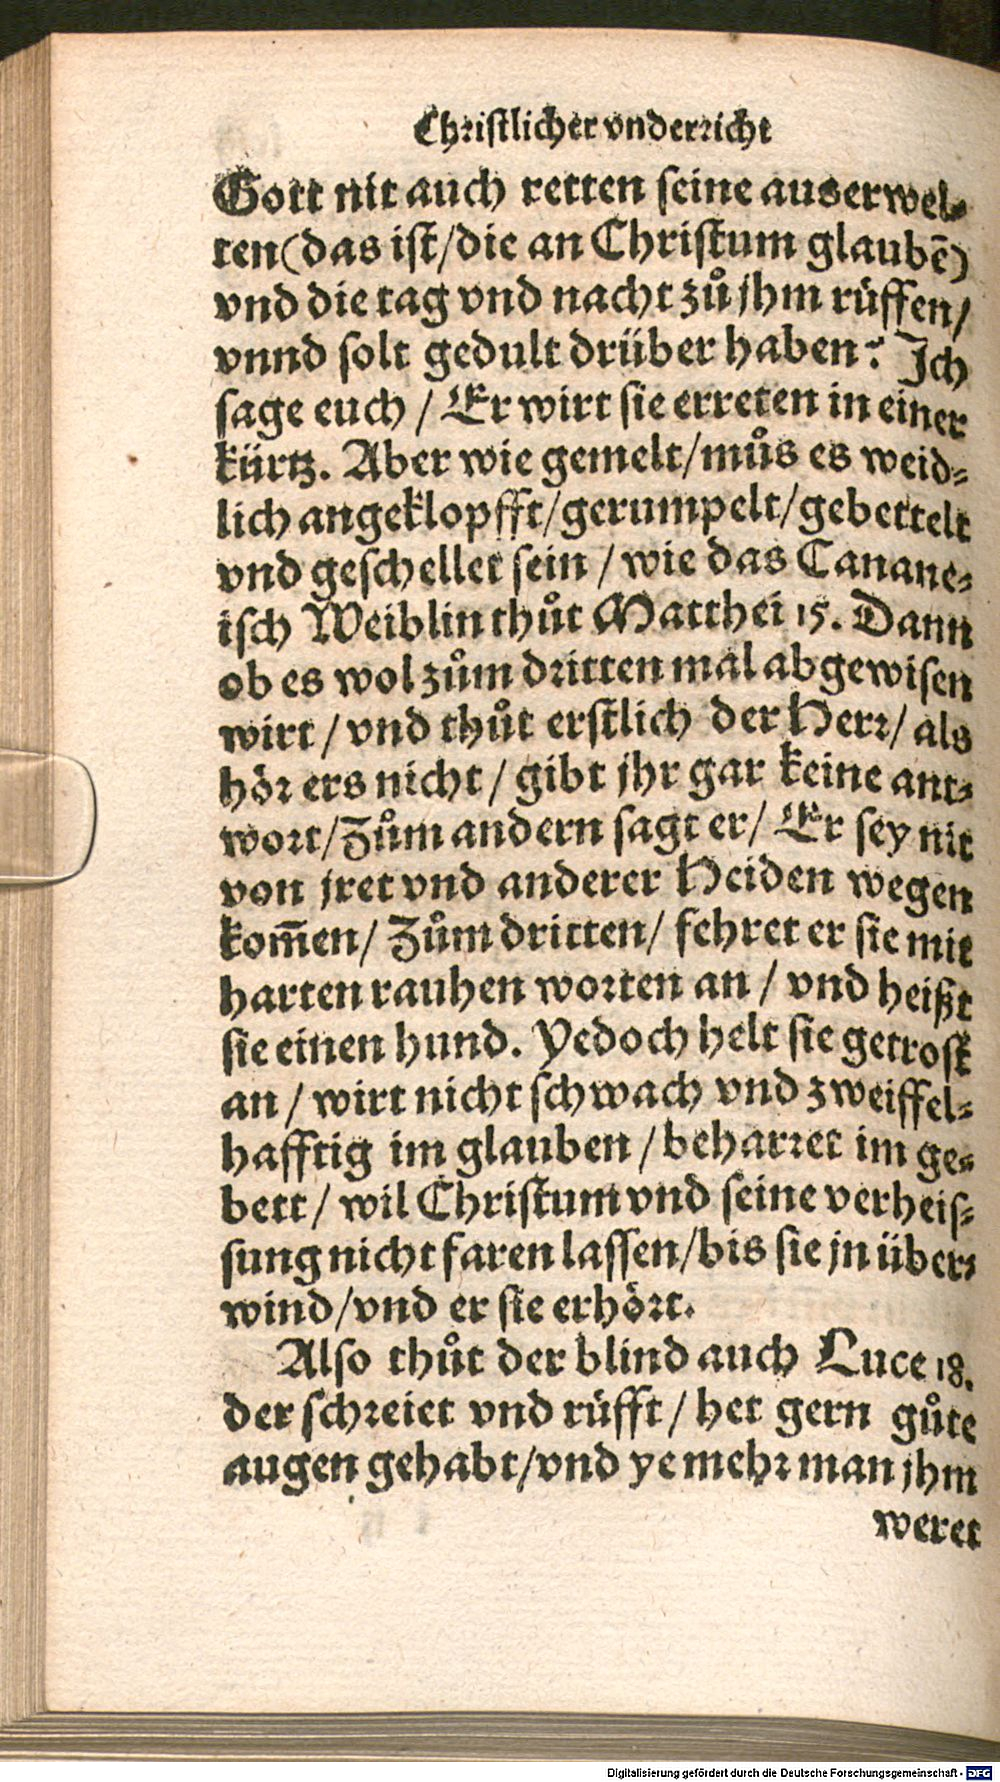 Christlicher vnderricht
Gott nit auch retten seine auserwel⸗
ten (das ist/die an Christum glaubē)
vnd die tag vnd nacht zů jhm rüffen/
vnnd solt gedult drüber haben? Ich
sage euch / Er wirt sie erreten in einer
kürtz. Aber wie gemelt/můs es weid⸗
lich angeklopfft/gerumpelt/gebettelt
vnd geschellet sein / wie das Canane⸗
isch Weiblin thůt Matthei 15. Dann
ob es wol zům dritten mal abgewisen
wirt / vnd thůt erstlich der Herr/ als
hör ers nicht / gibt jhr gar keine ant⸗
wort/Zům andern sagt er/ Er sey nit
von jret vnd anderer Heiden wegen
kom̄en/ Zům dritten/ fehret er sie mit
harten rauhen worten an / vnd heißt
sie einen hund. Yedoch helt sie getrost
an / wirt nicht schwach vnd zweiffel⸗
hafftig im glauben / beharret im ge⸗
bett / wil Christum vnd seine verheis⸗
sung nicht faren lassen/bis sie jn über⸗
wind/vnd er sie erhört.
Also thůt der blind auch Luce 18.
der schreiet vnd rüfft / het gern gůte
augen gehabt/vnd ye mehr man jhm
weret
Digitalisierung gefördert durch die Deutsche Forschungsgemeinschaft - DFG